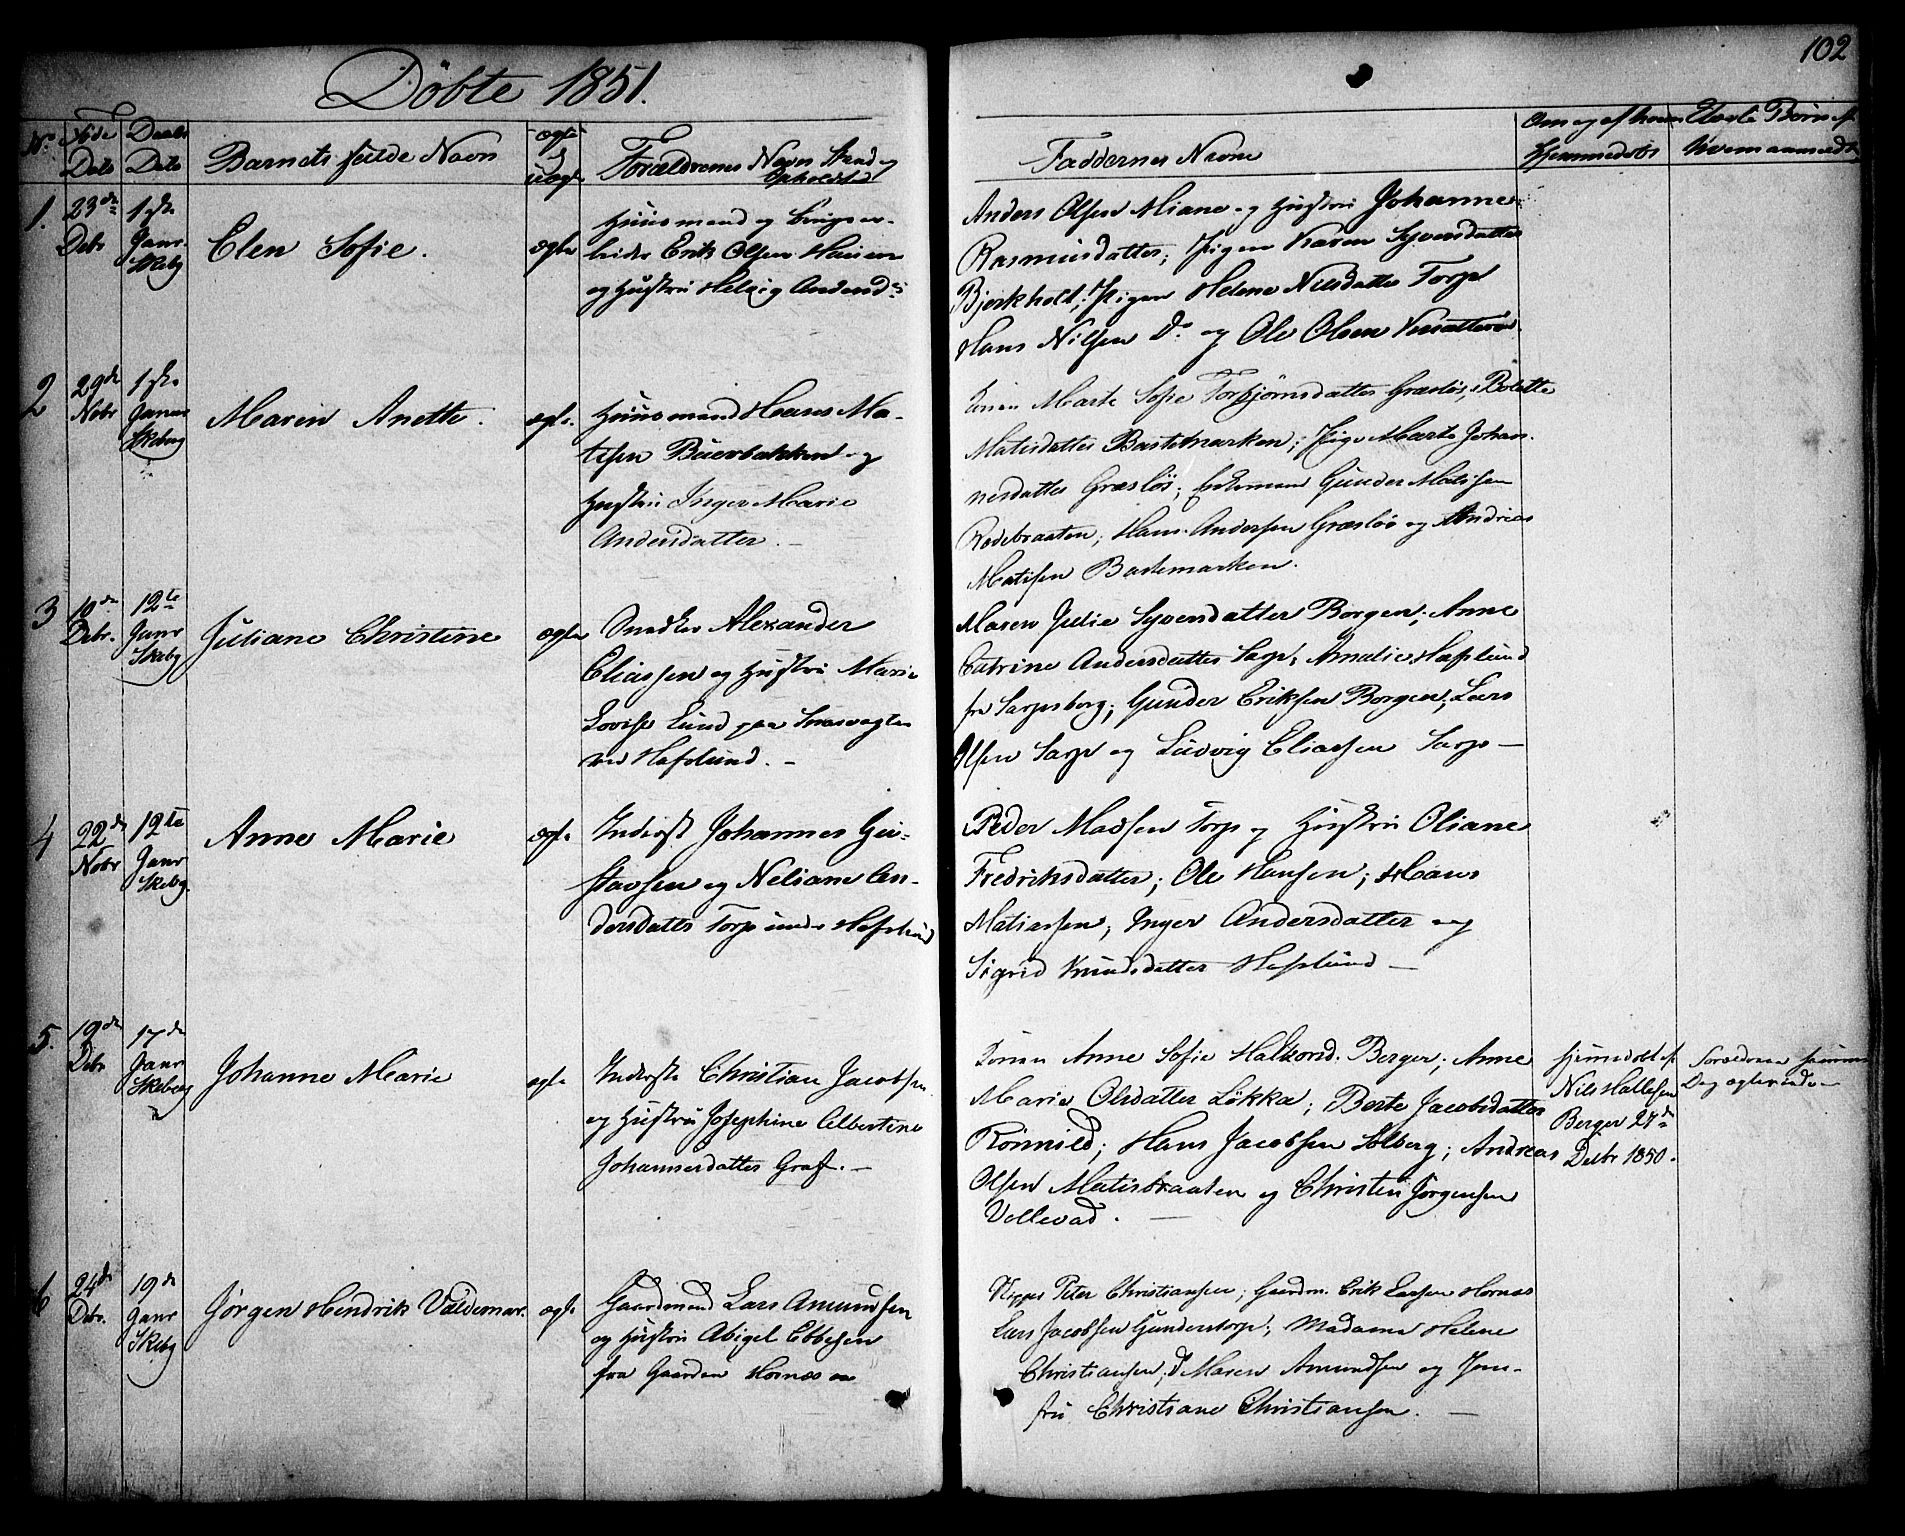 102
Döbte 1851.
No. Føde Dato Daabs Dato Barnets fulde Navn ægte uægte Forældrenes Navn Stand og Opholdsted
Faddernes Navne Om og af hvem Hjemmedøbt Uægte Børn af hvem anmeldt
1. 23de Debr 1ste Janr. Skebg Elen Sofie. ægte
Huusmand og
Erik Olsen
og Hustru Helvig Andersd:
Anders Olsen og Hustru Johanne
Rasmusdatter; Pigen Karen Syvensdatter
Bjørkholt; Pigen Helene Nilsdatter Torp
Hans Nilsen Do og Ole Olsen
2 29de Nobr 1ste Januar Skeberg Maren Anette. ægte.
Huusmand Hans Ma-
tisen Buerbakken og
Hustru Inger Marie
Andersdatter. –
Konen Marte Sofie Torbjørnsdatter Græsløs; Bolette
Matisdatter Bastemarken; Pige Marte Johan-
nesdatter Græsløs; Gunder Matisen
Rødebraaten; Hans Andersen Græsløs og Andreas
Matisen Bastemarken.
3 10de Debr. 12te Janr Skebg Juliane Christine ægte
Snedker Alexander
Eliassen og Hustru Marie
Lovise Lund paa
ved Hafslund. –
Maren Julie Syvensdatter Borgen; Anne
Catrine Andersdatter Sarp; Amalie Haslund
fra Sarpsborg; Gunder Eriksen Borgen; Lars
Olsen Sarp og Ludvig Eliassen Sarp –
4 22de Nobr 12te Janr Skebg. Anne Marie ægte
Inderst Johannes Gu-
stavsen og Neliane An-
dersdatter Torp under Hafslund
Peder Madsen Torp og Hustru Oliane
Fredriksdatter; Ole Hansen; Hans
Matiassen; Inger Andersdatter og
Sigrid Knudsdatter Hafslund –
5. 19de Debr 17de Janr Skeberg Johanne Marie ægte
Inderste Christian Jacobsen
og Hustru Josephine Albertine
Johannesdatter Graf. –
Konen Anne Sofie Halvord. Berger; Anne
Marie Olsdatter Løkka; Berte Jacobsdatter
Rønnild; Hans Jacobsen Solberg; Andreas
Olsen Matisbraaten og Christen Jørgensen
Vollevad. –
Hjemdøbt af
Nils Hallesen
Berger 27de
Debr 1850.
Forældrene
Dag ægteviede –
6 24de Debr. 19de Janr Skebg Jørgen Hendrik Valdemar. ægte
Gaardmand Lars Amundsen
og Hustru Abigel Ebbesen
fra Gaarden Hornæs
Peter Christiansen; Gaardm. Erik Larsen Hornæs
Lars Jacobsen Gunderstorp; Madame Helene
Christiansen; Do Maren Amundsen og Jom-
fru Christiane Christiansen. –